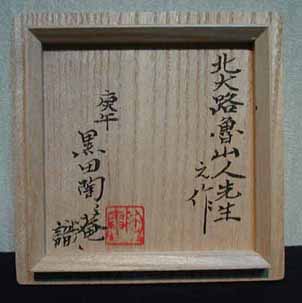 北大路魯山人先生
元作
庚午
黒田陶々菴
識